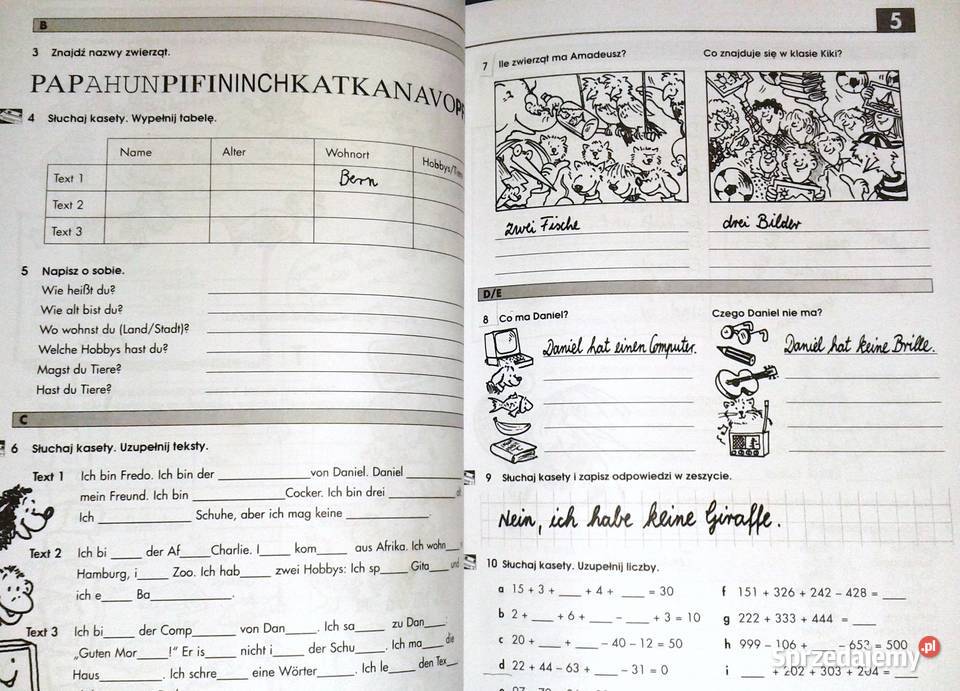 B
3 Znajdź nazwy zwierząt.
PAPAHUNPIFININCHKATKANAVOP
4 Słuchaj kasety. Wypełnij tabelę.
Name Alter Wohnort Hobbys/
Text 1 Bern
Text 2
Text 3
5 Napisz o sobie.
Wie heißt du?
Wie alt bist du?
Wo wohnst du (Land/Stadt)?
Welche Hobbys hast du?
Magst du Tiere?
Hast du Tiere?
C
6 Słuchaj kasety. Uzupełnij teksty.
Text 1 Ich bin Fredo. Ich bin der ____ von Daniel. Daniel ____
mein Freund. Ich bin ____ Cocker. Ich bin drei ____
Ich ____ Schuhe, aber ich mag keine ____.
Text 2 Ich bi____ der Af____ Charlie. I____ kom____ aus Afrika. Ich wohn____
Hamburg, i____ Zoo. Ich hab____ zwei Hobbys: Ich sp____ Gita____ und
ich e____ Ba____.
Text 3 Ich bi____ der Comp____ von Dan____. Ich sa____ zu Dan____:
„Guten Mor____!" Er is____ nicht i____ der Schu____. Ich ma____ die
Haus____. Ich schre____ eine Wörter____. Ich le____ den Tex____
5
7 Ile zwierząt ma Amadeusz?
zwei Fische
Co znajduje się w klasie Kiki?
drei Bilder
D/E
8 Co ma Daniel?
Daniel hat einen Computer.
Czego Daniel nie ma?
Daniel hat keine Brille.
9 Słuchaj kasety i zapisz odpowiedzi w zeszycie.
Nein, ich habe keine Giraffe.
10 Słuchaj kasety. Uzupełnij liczby.
a 15 + 3 + ____ + 4 + ____ = 30
b 2 + ____ + 6 + ____ – ____ + 3 = 10
c 20 + ____ + ____ – 40 – 12 = 50
d 22 + 44 – 63 + ____ – 31 = 0
f 151 + 326 + 242 – 428 = ____
g 222 + 333 + 444 = ____
h 999 – 106 + ____ – 653 = 500
i ____ + 202 + 303 + 204 = ____
Sprzedajemy.pl